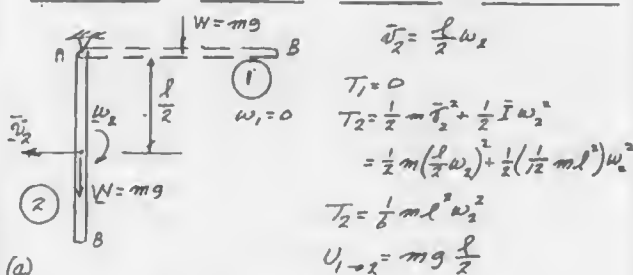 W = mg
A
B
1
ω₁ = 0
l/2
ω₂
v̄₂
2
W = mg
B
(a)
v̄₂ = l/2 ω₂
T₁ = 0
T₂ = 1/2 m v̄₂² + 1/2 Ī ω₂²
= 1/2 m (l/2 ω₂)² + 1/2 (1/12 ml²) ω₂²
T₂ = 1/6 ml² ω₂²
U₁→₂ = mg l/2